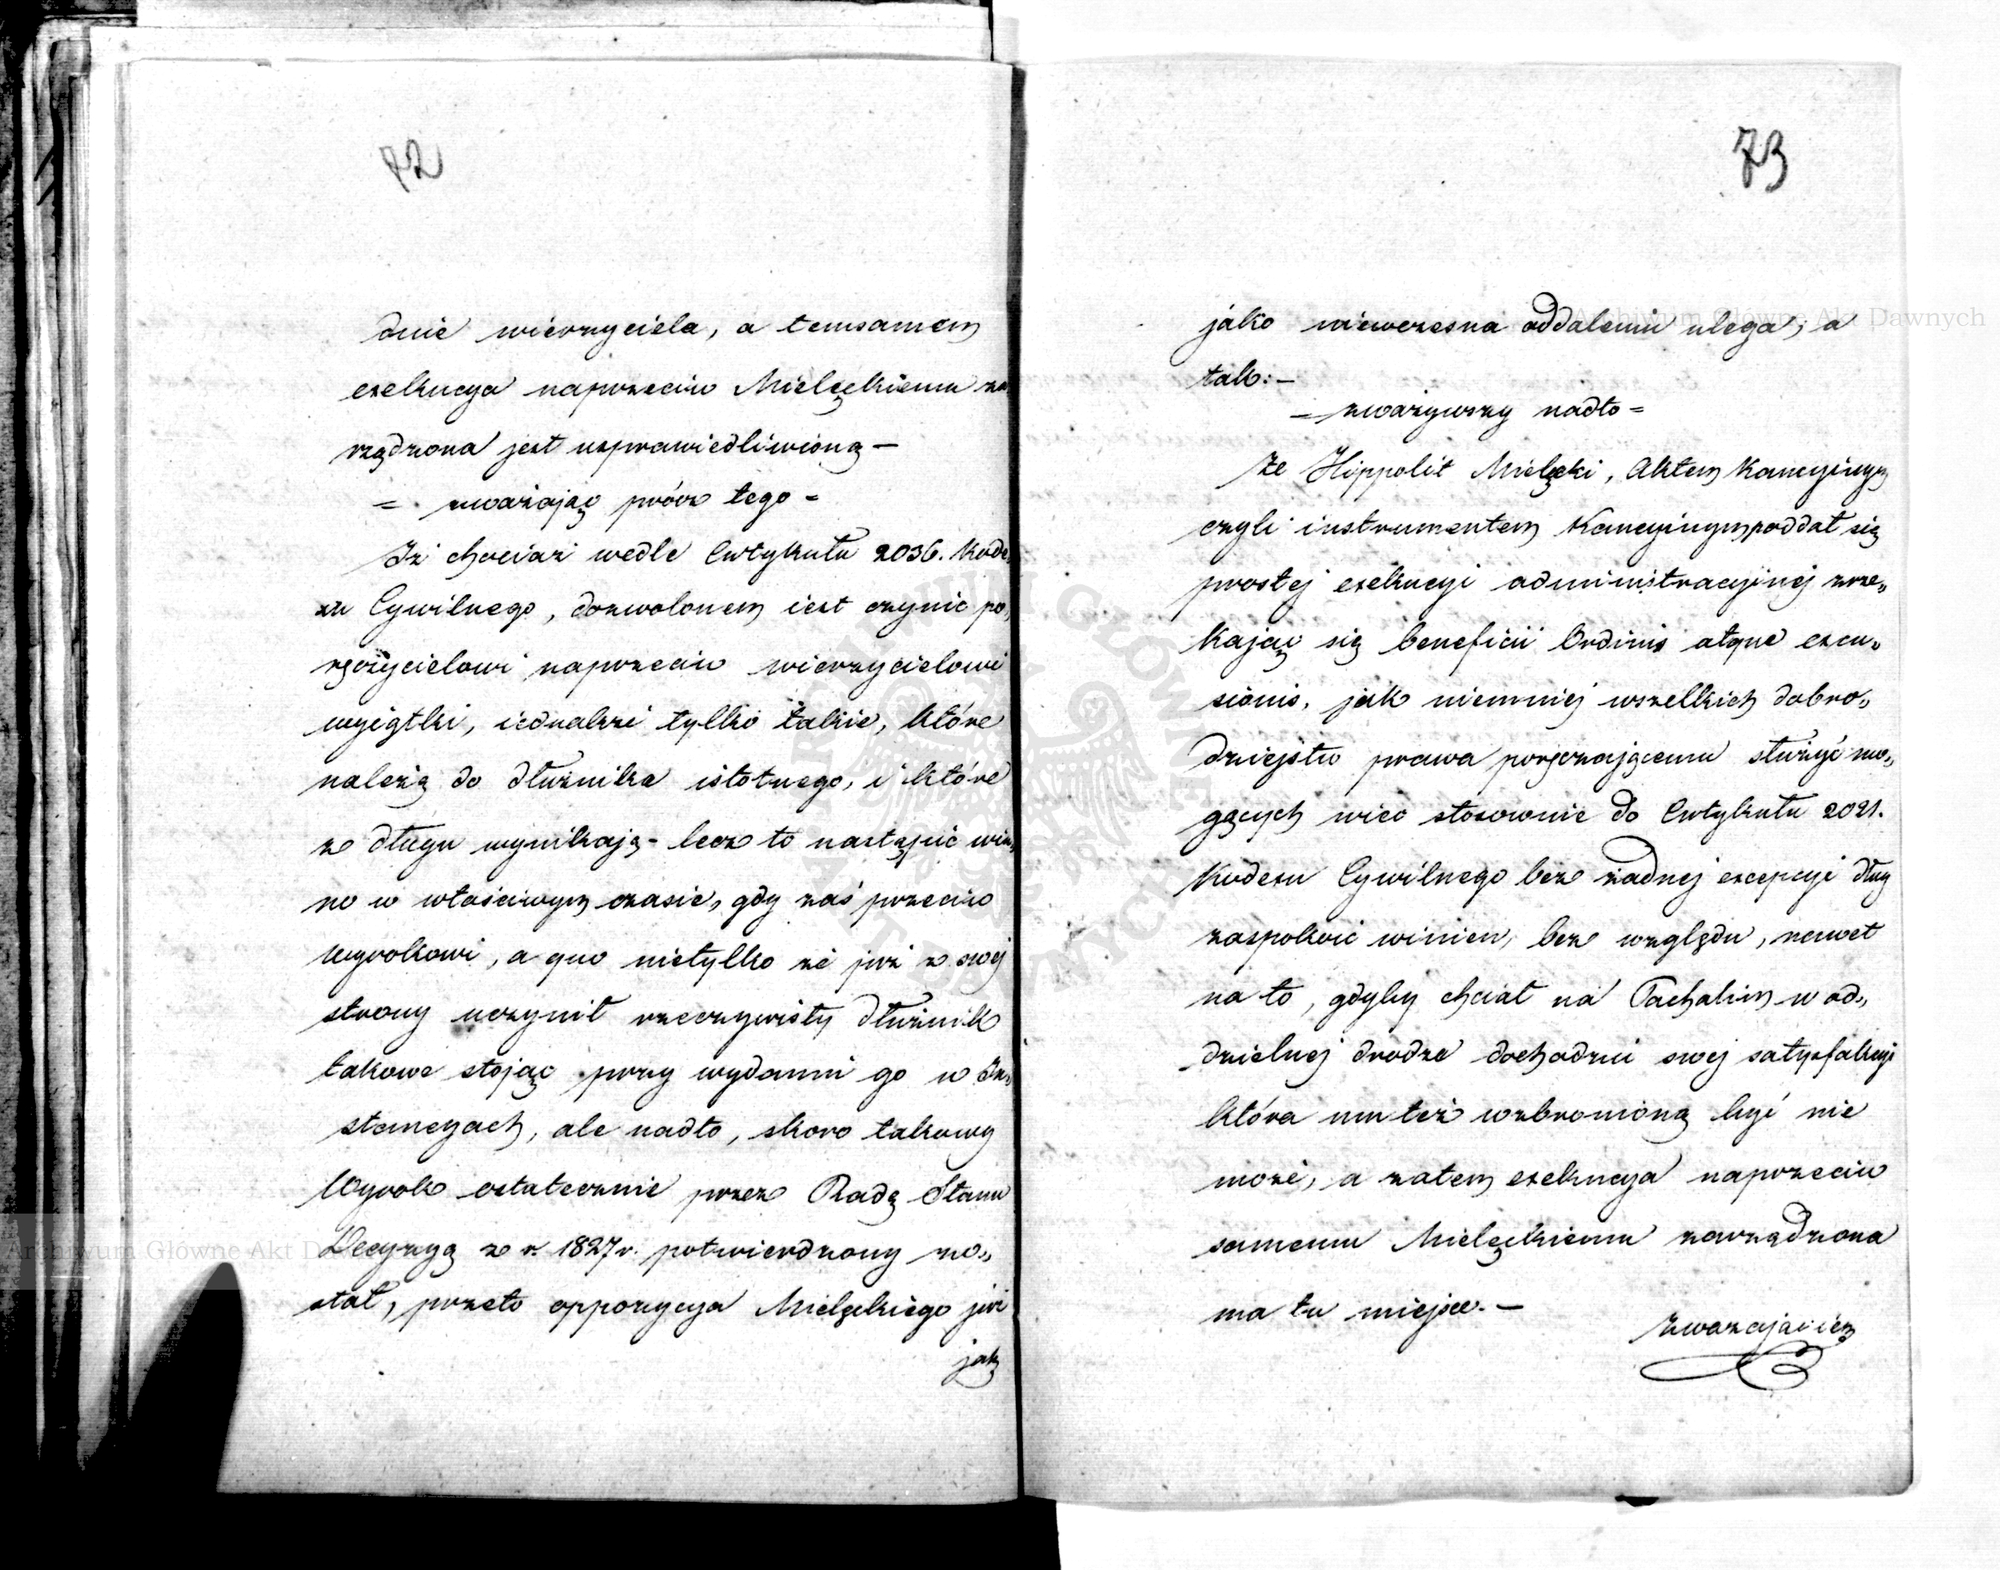 72
dnie wierzyciela, a temsamem
exekucya naprzeciw Mielęckiemu za
rządzona jest usprawiedliwioną —
= uważając prócz tego =
Iż chociaż wedle Artykułu 2036. Kode„
xu Cywilnego, dozwolonem iest czynić po„
ręczycielowi naprzeciw wierzycielowi
wyiątki, iednakże tylko takie, które
należą do dłużnika istotnego, i które
z długu wynikają – lecz to nastąpić win„
no w właściwym czasie, gdy zaś przeciw
wyrokowi, a quo nietylko że już z swej
strony uczynił rzeczywisty dłużnik
takowe stojąc przy wydaniu go w In„
stancyach, ale nadto, skoro takowy
Wyrok ostatecznie przez Radę Stanu
Decyzyą z r. 1827 r. potwierdzony zo„
stał, przeto oppozycya Mielęckiego już
jak
73
jako niewczesna oddaleniu ulega; a
tak: —
= zważywszy nadto =
że Hippolit Mielęcki, Aktem Kaucyinym
czyli instrumentem Kaucyinym poddał się
prostej exekucyi administracyinej zrze„
kając się beneficii Ordinis atque excu„
sionis, jak niemniej wszelkich dobro„
dziejstw prawa poręczającemu służyć mo„
gących więc stosownie do Artykułu 2021.
Kodexu Cywilnego bez żadnej excepcyi dług
zaspokoić winien, bez względu, nawet
na to, gdyby chciał na Pachalim w od„
dzielnej drodze dochodzić swej satysfakcyi
która mu też wzbronioną być nie
może, a zatem exekucya naprzeciw
samemu Mielęckiemu zarządzona
ma tu miejsce. —
Zważając iż
Archiwum Główne Akt Dawnych
Archiwum Główne Akt Dawnych